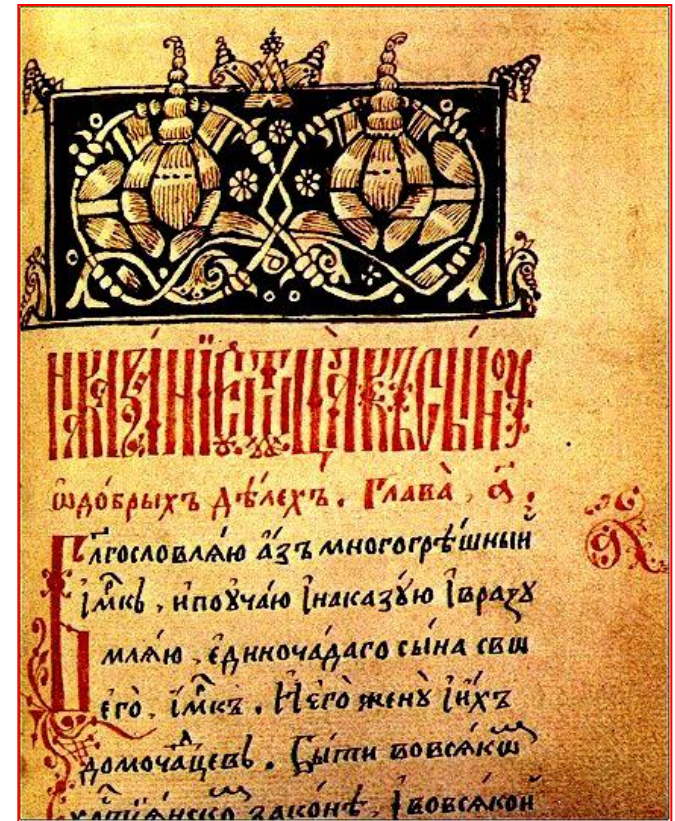 НАКАЗАНІЕ ѾЦА КЪ СЫНОУ
ѡдо́брыхъ дѣ́лехъ. Глава̀, а҃.
Блгословлѧ́ю а́зъ многогрѣ́шныи
і҆м҃къ, ипоꙋча́ю і҆наказꙋ́ю і҆вразꙋ
млѧ́ю, е҆диноча́даго сы́на сво
его̀. і҆м҃къ. И҆его̀ женꙋ̀ і҆и́хъ
домоча́дцевъ. Бы́ти вовсѧ́ко
хрⷭ҇тїѧ́нско зако́нѣ, І҆вовсѧ́кои
а҃